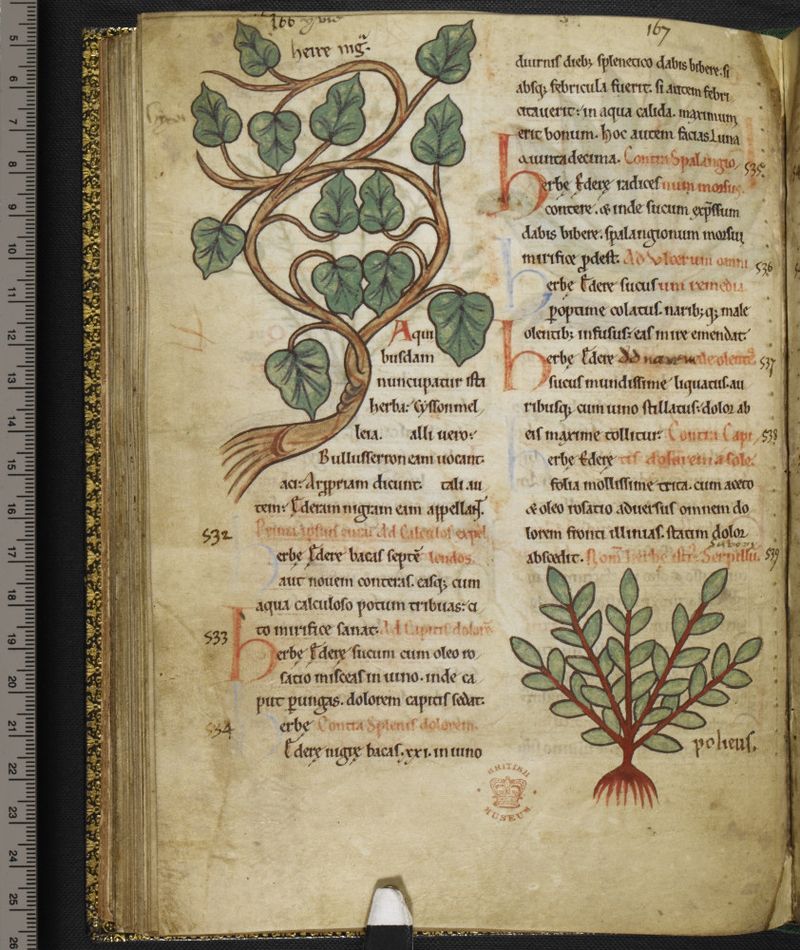 166
heire nig̃
A qui
busdam
nuncupatur ista
herba. Cyssonmel
leia. alii uero.
Bullusserron eam uocant.
aci. Argyriam dicunt. tali au
tem. Ederam nigram eam appellant̃.
532
erbe Edere bacas septẽ tendos.
aut nouem conteras. easq; cum
aqua calculoso potum tribuas. ci
533
to mirifice sanat. Ad Capitis dolorẽ
erbe Edere sucum cum oleo ro
satio misceas in uino. inde ca
put pungas. dolorem capitis sedat.
534
erbe Contra Splenis dolorem.
Edere nigre bacas. xxi. in uino
167
diurnis dieb; splenetico dabis bibere. si
absq; febricula fuerit. si autem febri
citauerit. in aqua calida. maximum
erit bonum. hoc autem facias luna
quinta decima. Contra Spalangio
535
herbe Edere radices num morsus.
contere. & inde sucum exp̃ssum
dabis bibere. spalangionum morsui
mirifice p̃dest. Ad Vlcerum
536
erbe Edere sucus remedia
optime colatus. narib; q; male
olentib; infusus. eas mire emendat.
537
herbe Edere
sucus mundissime liquatus. au
ribusq; cum uino stillatus. dolor ab
eis maxime tollitur. Contra Capi
538
erbe Edere tis dolorem a sole.
folia mollissime trita. cum aceto
& oleo rosatio aduersus omnem do
lorem fronti illinias. statim dolor
abscedit. Nom̃ herbe Serpillũ.
539
poliens.
BRITISH
MUSEUM